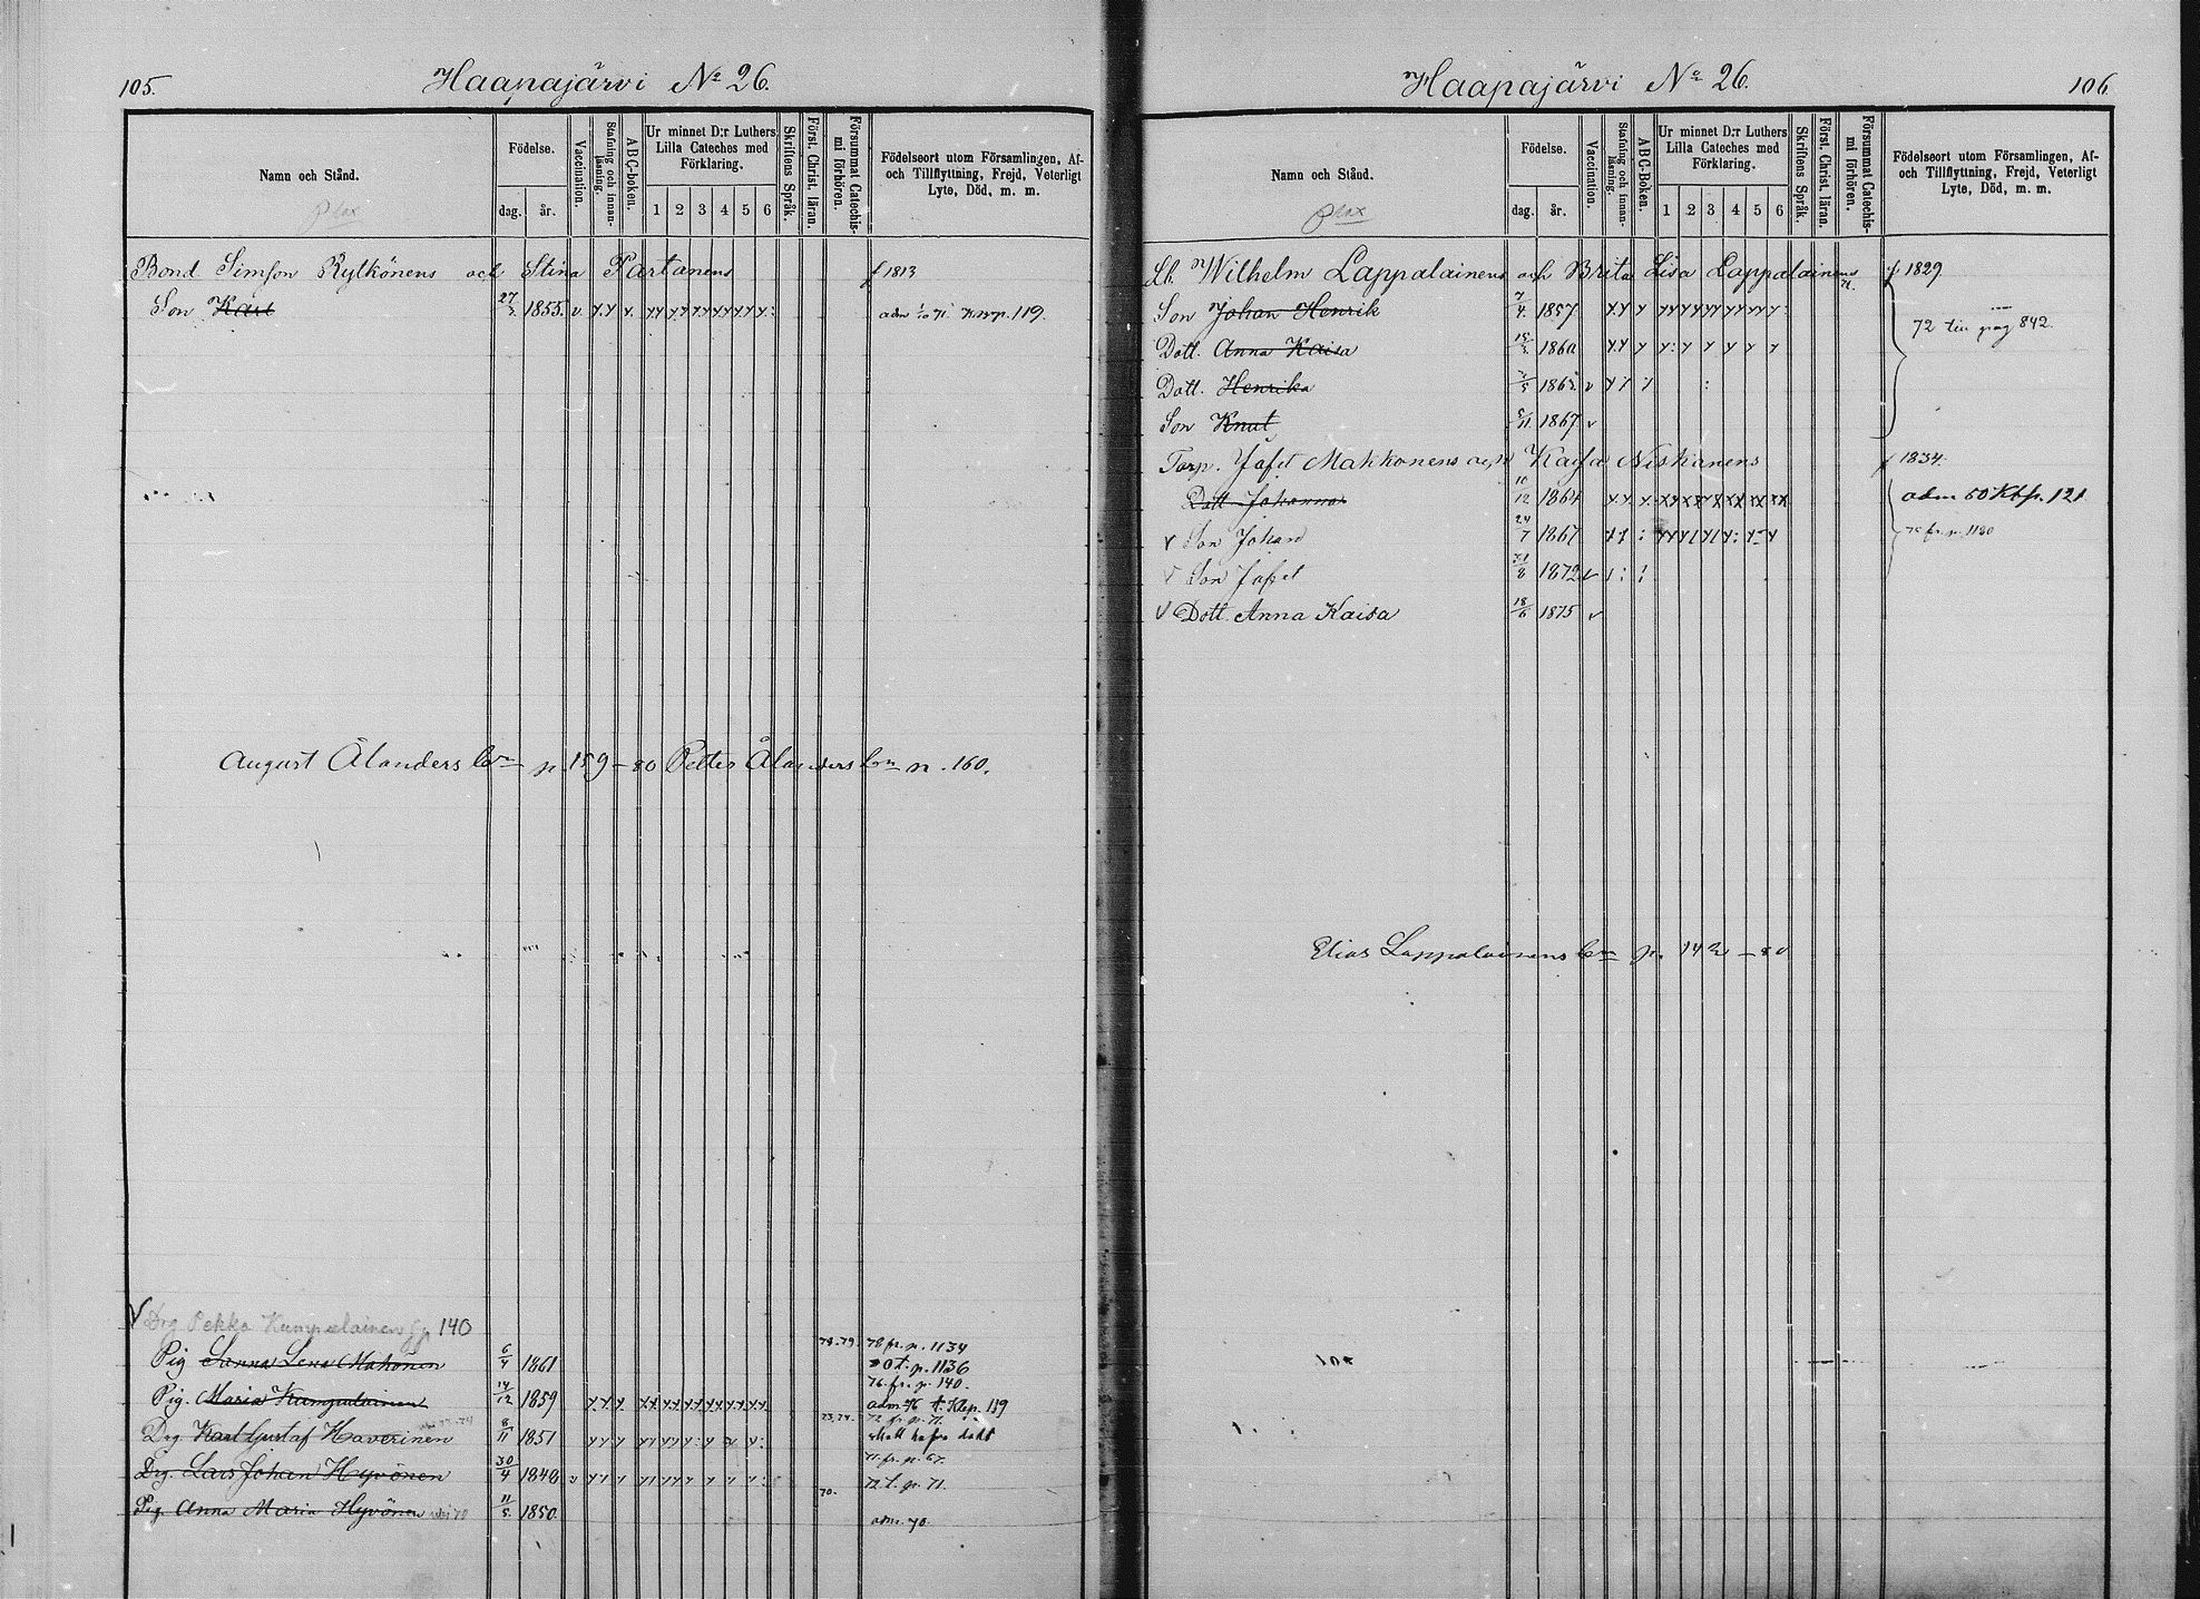 105.
Haapajärvi No 26.
Namn och Stånd.
Födelse.
dag.
år.
Vaccination.
Stafning och innan-
läsning.
ABC-boken.
Ur minnet D:r Luthers
Lilla Cateches med
Förklaring.
1 2 3 4 5 6
Skriftens Språk.
Först. Christ. läran.
Försummat Catechis-
mi förhören.
Födelseort utom Församlingen, Af-
och Tillflyttning, Frejd, Veterligt
Lyte, Död, m. m.
Bond Simson Rytkönens och Stina Partanens f 1813
Son Karl 27/2 1855. adm 119.
August Ålanders bm p. 159 - 80 Petter Ålanders bm p. 160.
Drg Pekka Kumpulainen 140
Pig Sanna Lena Mahonen 6/4 1861 78.79. 78 fr. p. 1134
t. p. 1136
76. fr. p. 140.
Pig. Maria Kumpulainen 14/12 1859 adm 76 t. Kbp. 119
73.74. 72 fr. p. 71.
Drg Karl Gustaf Haverinen 8/11 1851 skall hafva dödt
71. fr. p. 67.
Drg. Lars Johan Hyvönen 30/4 1848 72 t. p. 71.
70.
Pig. Anna Maria Hyvönen 11/5 1850 adm. 70.
Haapajärvi No 26.
106
Namn och Stånd.
Födelse.
dag.
år.
Vaccination.
Stafning och innan-
läsning.
ABC-Boken.
Ur minnet D:r Luthers
Lilla Cateches med
Förklaring.
1 2 3 4 5 6
Skriftens Språk.
Först. Christ. läran.
Försummat Catechis-
mi förhören.
Födelseort utom Församlingen, Af-
och Tillflyttning, Frejd, Veterligt
Lyte, Död, m. m.
Wilhelm Lappalainens och Brita Lisa Lappalainens f 1829.
Son Johan Henrik 7/4 1857 72 till pag 842.
Dott. Anna Kaisa 15/3 1860
Dott. Henrika 1862
Son Knut 5/11 1867
Torp. Jafet Makkonens och Kajsa Niskanens f 1834.
Dott Johanna 10/12 1864 adm 80 Kbp. 121
Son Johan 24/7 1867 fr. p. 1130
Son Jafet 31/8 1872
Dott. Anna Kaisa 18/6 1875
Elias Lappalainens bm p. 142 - 80